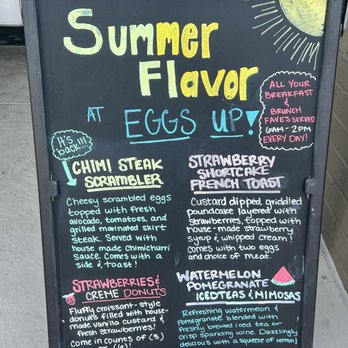 Summer
Flavor
AT EGGS UP!
ALL YOUR
BREAKFAST
&
BRUNCH
FAVES SERVED
6AM-2PM
EVERY DAY!
It's
back!!!
CHIMI STEAK
SCRAMBLER
Cheesy scrambled eggs
topped with fresh
avocado, tomatoes, and
grilled marinated skirt
steak. Served with
house made chimichurri
sauce. Comes with a
side & toast!
STRAWBERRY
SHORTCAKE
FRENCH TOAST
Custard dipped, griddled
poundcake layered with
strawberries, topped with
house-made strawberry
syrup & whipped cream!
comes with two eggs
and choice of meat.
STRAWBERRIES &
CREME DONUTS
Fluffy croissant-style
donuts filled with house-
made vanilla custard &
fresh strawberries!
come in counts of (3)
or (6)
WATERMELON
POMEGRANATE
ICED TEAS & MIMOSAS
Refreshing watermelon &
pomegranate blended with
freshly brewed iced tea or
crisp sparkling wine. Dazzlingly
delicious with a squeeze of lemon!